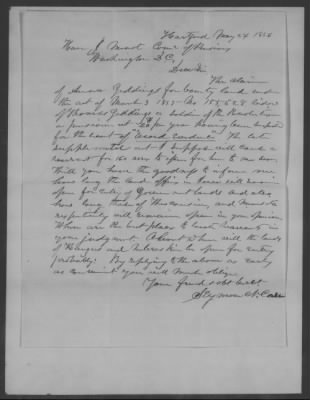 Hartford May 24 1856
Hon J Minot Com. of Pensions
Washington D.C.
Dear Sir
The claim
of Anna Giddings for bounty land under
the act of March 3 1855 No 155628 widow
of Giddings a soldier of the Revolution
a pensioner at 20 per year having been
for the want of "record evidence" The late
supplemental act I suppose will cause a
removal for its
Will you have the goodness to inform me
how long the land office in Iowa will remain
open for entry of Government lands and also
how long those of Wisconsin, and Minnesota
respectively will remain open in your opinion
Where are the best places to locate warrants in
your judgment About when will the lands
of Kansas and Nebraska be open for entry
probably. By replying to the above as early
as convenient you will much oblige
Your friend & obt Servt
Seymour N. Case